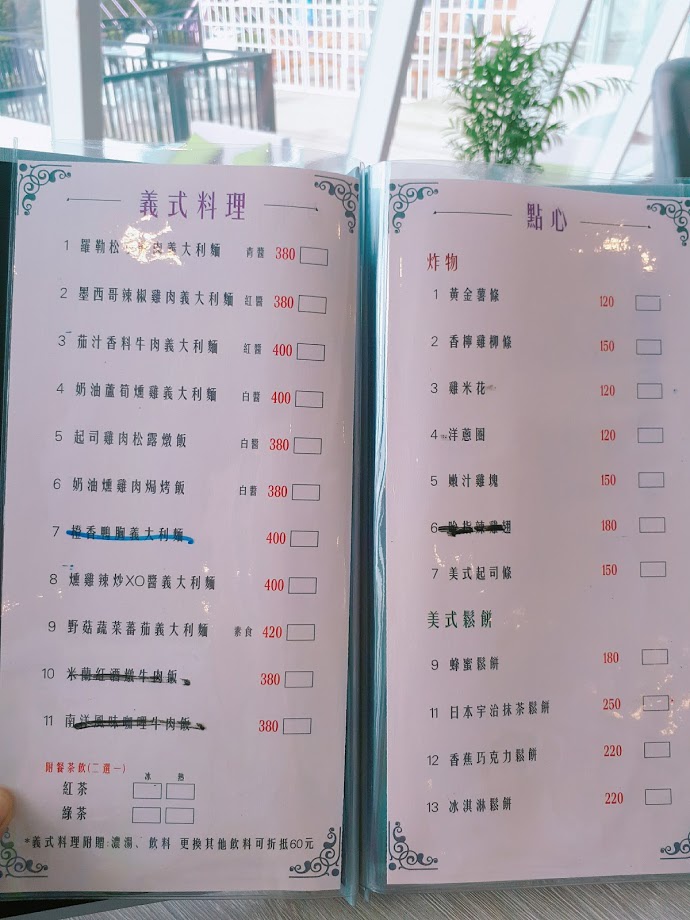 義式料理
1 羅勒松 肉義大利麵 青醬 380
2 墨西哥辣椒雞肉義大利麵 紅醬 380
3 茄汁香料牛肉義大利麵 紅醬 400
4 奶油蘆筍燻雞義大利麵 白醬 400
5 起司雞肉松露燉飯 白醬 380
6 奶油燻雞肉焗烤飯 白醬 380
7 橙香鴨胸義大利麵 400
8 燻雞辣炒XO醬義大利麵 400
9 野菇蔬菜蕃茄義大利麵 素食 420
10 米蘭紅酒燉牛肉飯 380
11 南洋風味咖哩牛肉飯 380
附餐茶飲(二選一)
冰 熱
紅茶
綠茶
*義式料理附贈:濃湯、飲料 更換其他飲料可折抵60元
點心
炸物
1 黃金薯條 120
2 香檸雞柳條 150
3 雞米花 120
4 洋蔥圈 120
5 嫩汁雞塊 150
6 辣雞翅 180
7 美式起司條 150
美式鬆餅
9 蜂蜜鬆餅 180
11 日本宇治抹茶鬆餅 250
12 香蕉巧克力鬆餅 220
13 冰淇淋鬆餅 220